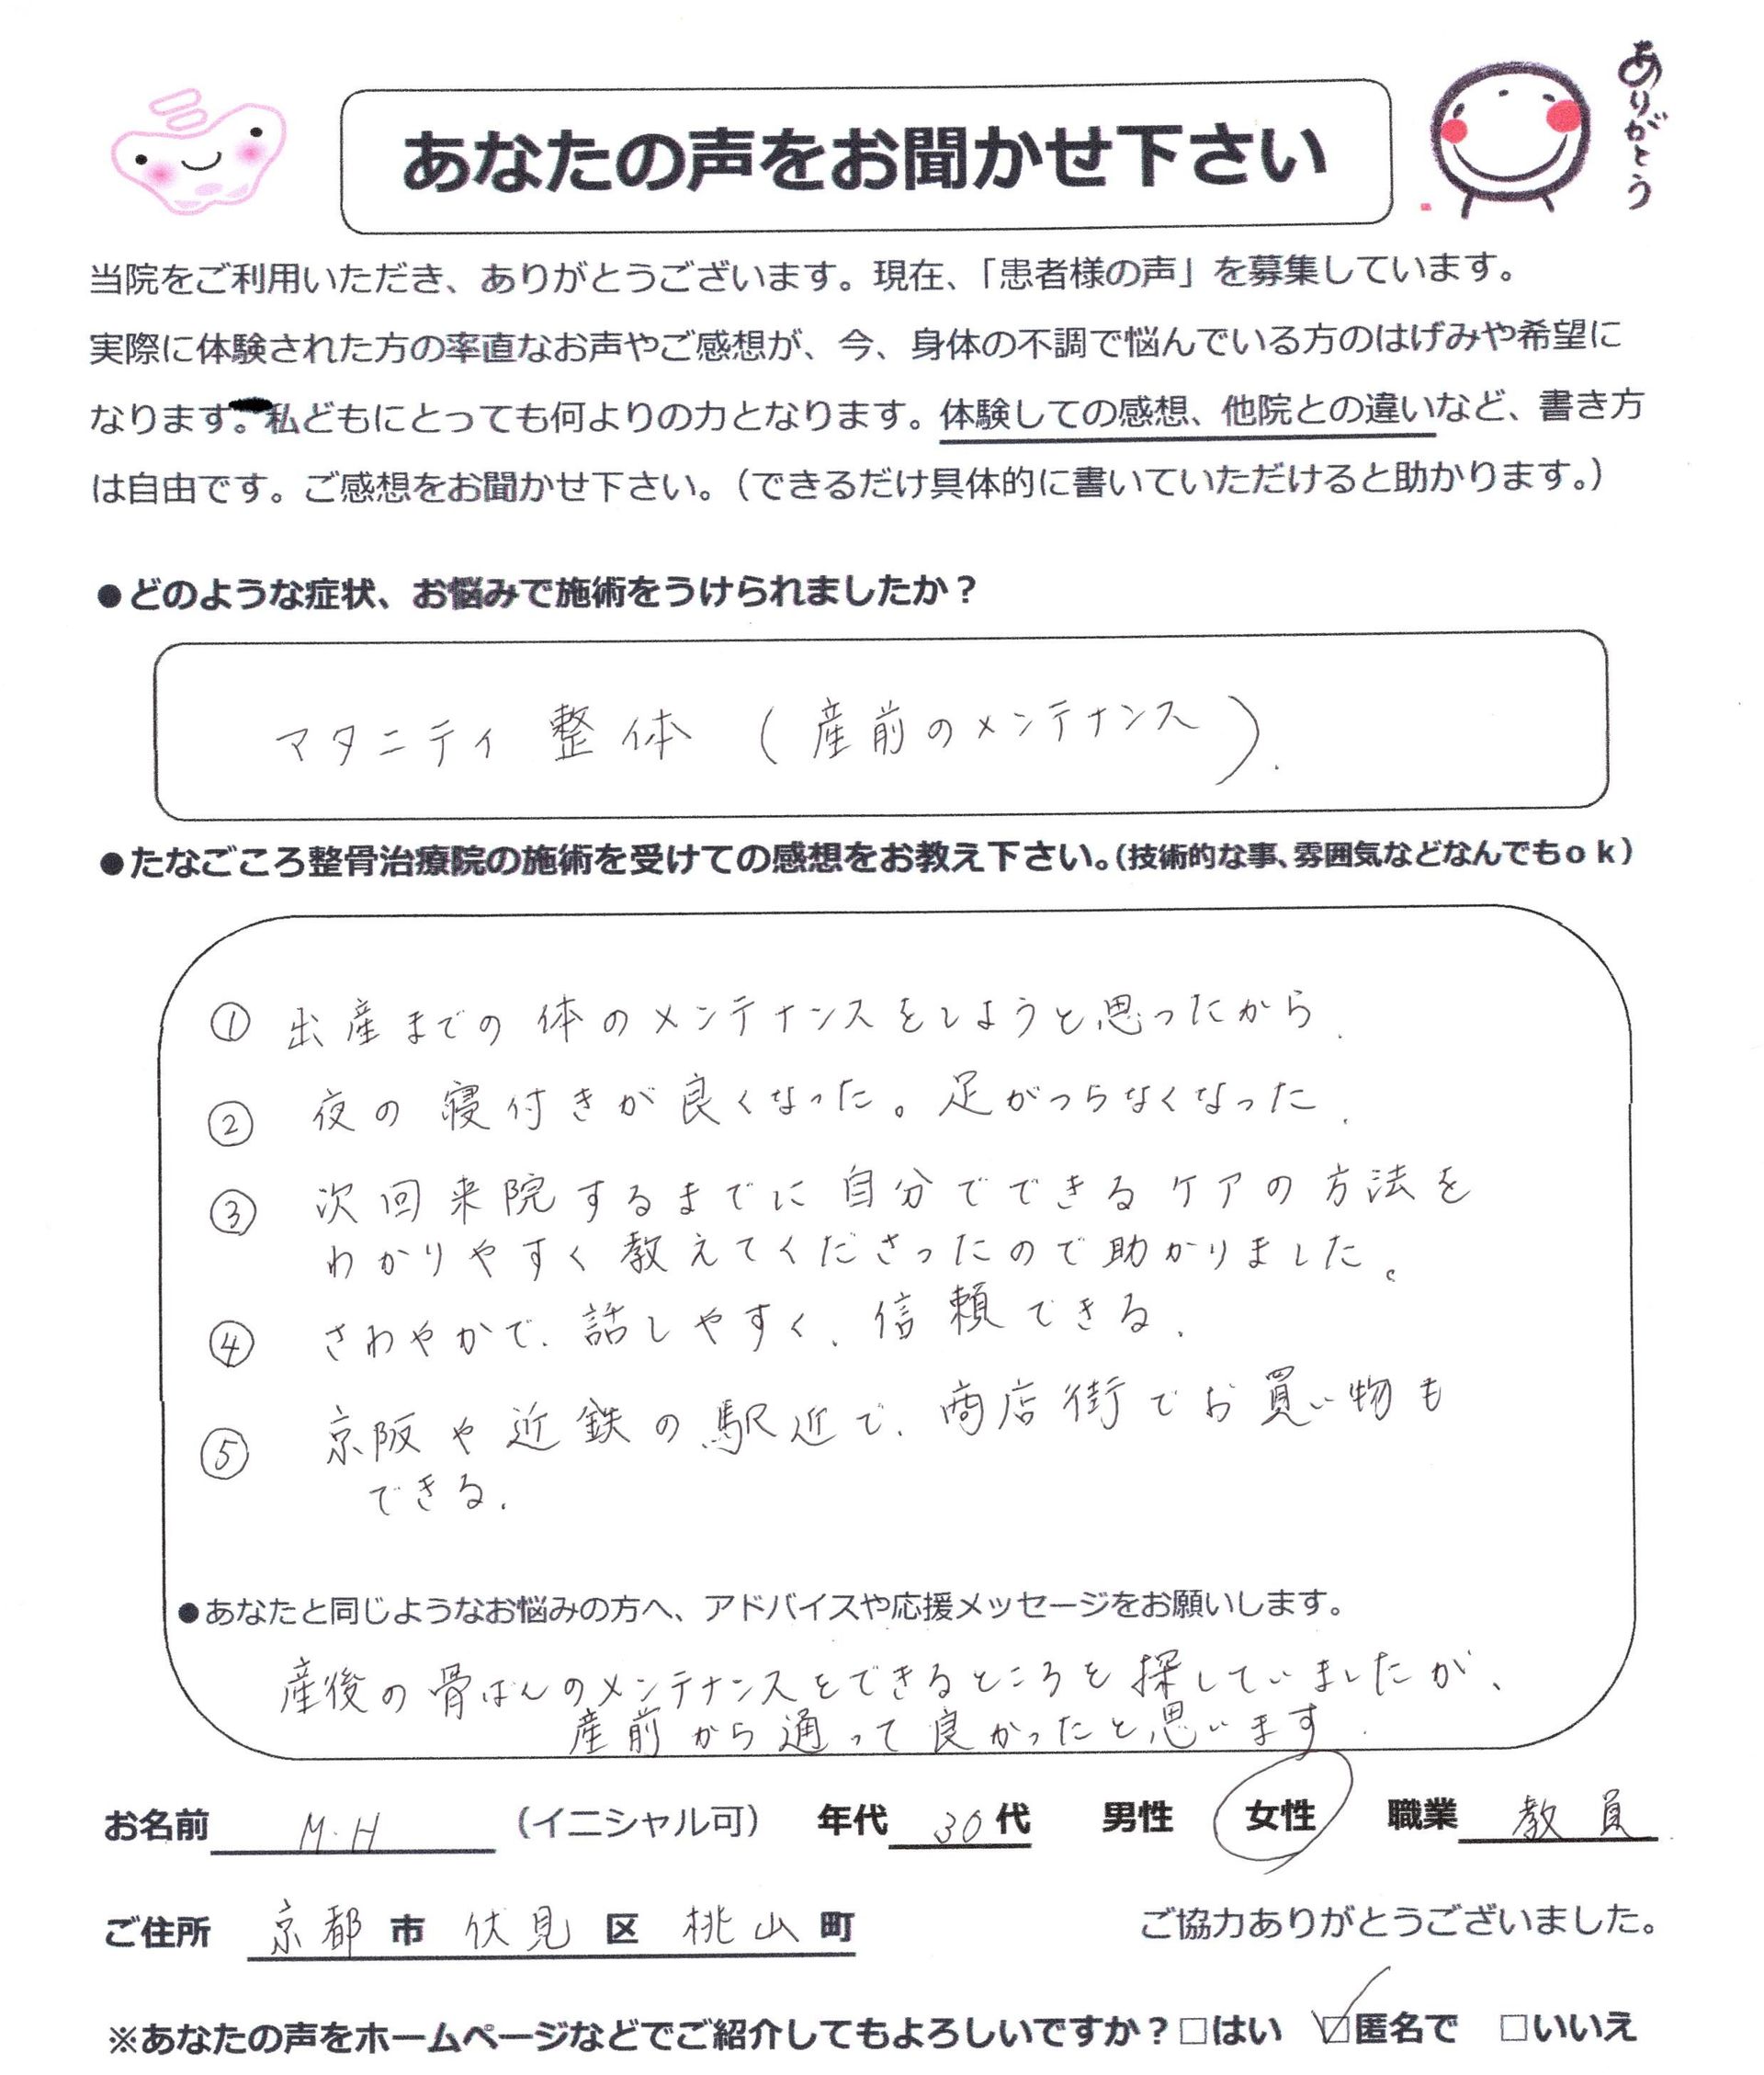 あなたの声をお聞かせ下さい
ありがとう
当院をご利用いただき、ありがとうございます。現在、「患者様の声」を募集しています。
実際に体験された方の率直なお声やご感想が、今、身体の不調で悩んでいる方のはげみや希望に
なります。私どもにとっても何よりの力となります。体験しての感想、他院との違いなど、書き方
は自由です。ご感想をお聞かせ下さい。（できるだけ具体的に書いていただけると助かります。）
●どのような症状、お悩みで施術をうけられましたか？
マタニティ整体（産前のメンテナンス）.
●たなごころ整骨治療院の施術を受けての感想をお教え下さい。（技術的な事、雰囲気などなんでもｏｋ）
① 出産までの体のメンテナンスをしようと思ったから.
② 夜の寝付きが良くなった。足がつらなくなった.
③ 次回来院するまでに自分でできるケアの方法を
わかりやすく教えてくださったので助かりました。
④ さわやかで、話しやすく、信頼できる.
⑤ 京阪や近鉄の駅近で、商店街でお買い物も
できる.
●あなたと同じようなお悩みの方へ、アドバイスや応援メッセージをお願いします。
産後の骨ばんのメンテナンスをできるところを探していましたが、
産前から通って良かったと思います.
お名前 M.H （イニシャル可） 年代 30代 男性 女性 職業 教員
ご住所 京都市 伏見区 桃山町 ご協力ありがとうございました。
※あなたの声をホームページなどでご紹介してもよろしいですか？□はい ☑匿名で □いいえ